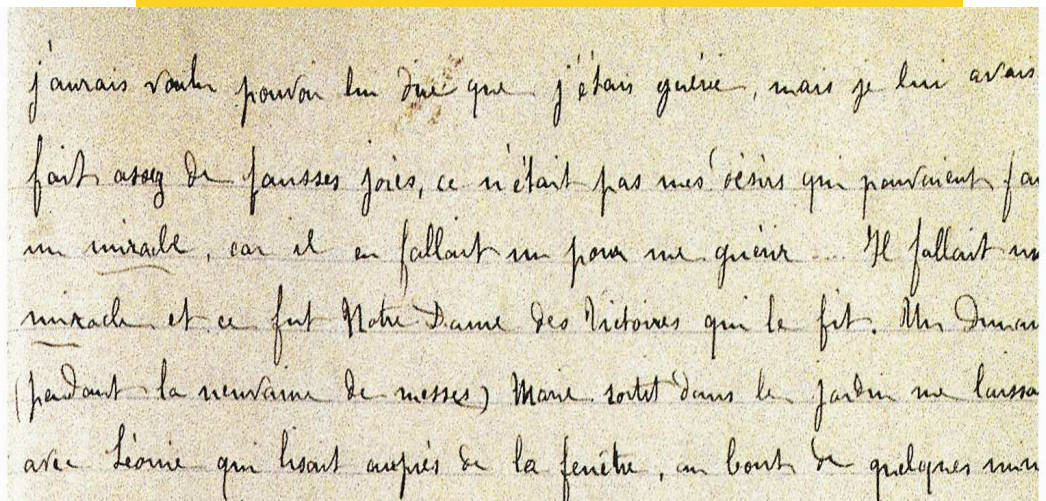 j'aurais voulu pouvoir lui dire que j'étais guérie, mais je lui avais
fait assez de fausses joies, ce n'était pas mes désirs qui pouvaient fai
un miracle, car il en fallait un pour me guérir... Il fallait un
miracle et ce fut Notre Dame des Victoires qui le fit. Un Diman
(pendant la neuvaine de messes) Marie sortit dans le jardin me laissa
avec Léonie qui lisait auprès de la fenêtre, au bout de quelques minu